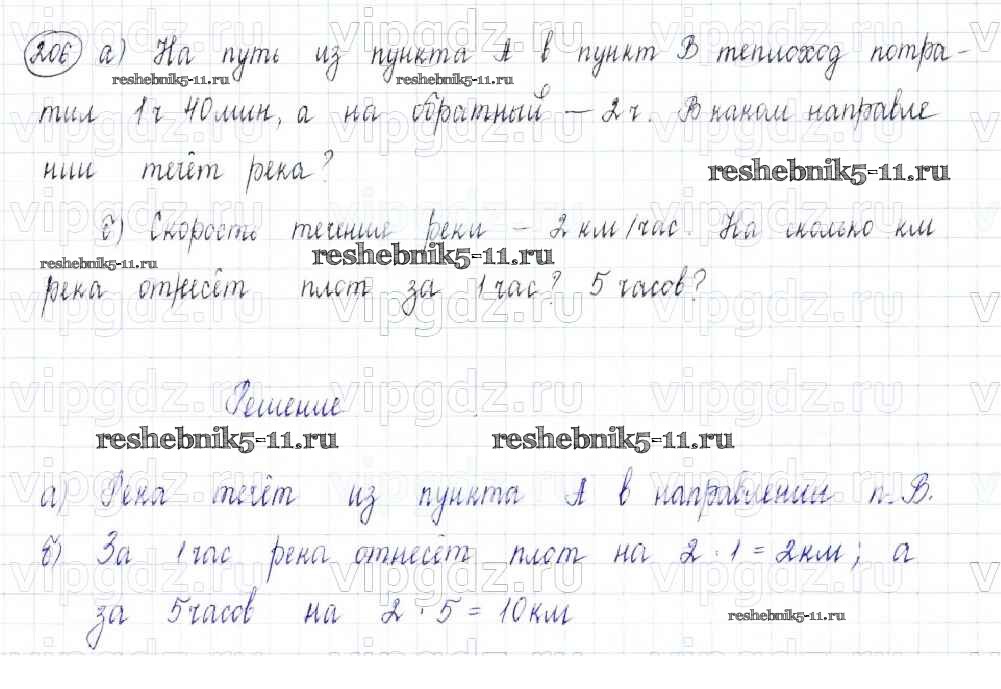 206 а) На путь из пункта А в пункт В теплоход потра-
reshebnik5-11.ru reshebnik5-11.ru
тил 1ч 40мин, а на обратный – 2ч. В каком направле
нии течёт река?
reshebnik5-11.ru
б) Скорость течение реки – 2км/час. На сколько км
reshebnik5-11.ru reshebnik5-11.ru
река отнесёт плот за 1час? 5 часов?
Решение
reshebnik5-11.ru reshebnik5-11.ru
а) Река течёт из пункта А в направлении п. В.
б) За 1час река отнесёт плот на 2 · 1 = 2км; а
за 5часов на 2 · 5 = 10км
reshebnik5-11.ru
vipgdz.ru vipgdz.ru vipgdz.ru vipgdz.ru